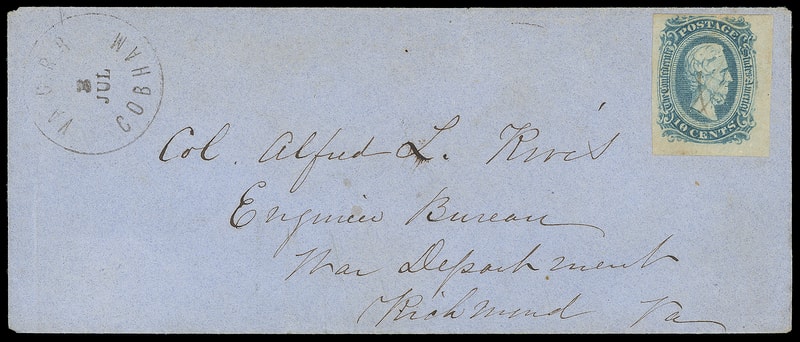 VA C. R. R
3
JUL
COBHAM
POSTAGE
The Confederate States of America
10 CENTS
Col. Alfred L. Rives
Engineer Bureau
War Department
Richmond Va